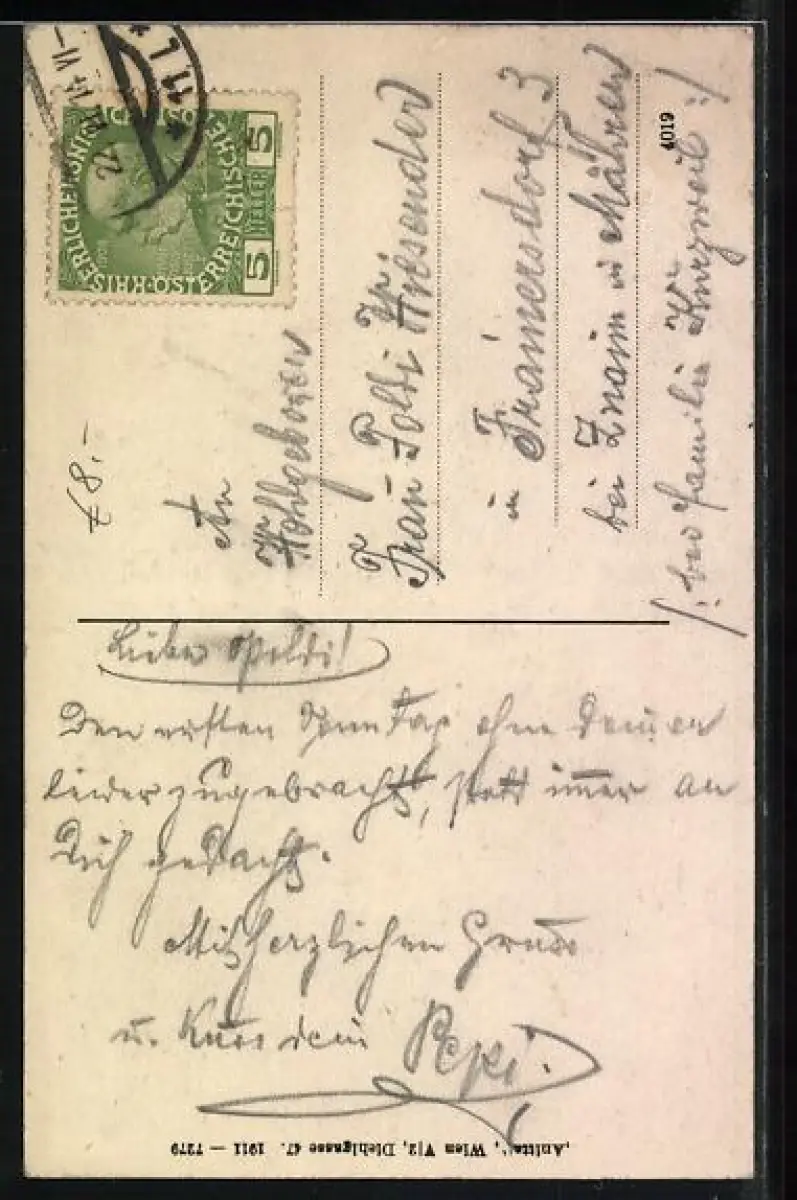 KAISERLICHE KÖNIGLICHE
ÖSTERREICHISCHE
5 HELLER 5
8.-
An
Wohlgeboren
Frau Poldi
in Frainersdorf 3
bei Znaim in Mähren
/: bei Familie Kurzweil :/
4019
Liebe Poldi!
Den ersten Sonntag ohne Deiner
leider zugebracht, statt immer an
Dich gedacht.
Mit herzlichen Gruss
u. Kuss dein Pepi.
Wien V/2, Diehlgasse 47. 1911 — 7279